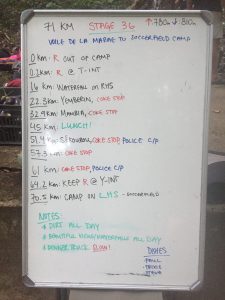 71 KM STAGE 36 ↑780m ↓810m
VOILE DE LA MARIEE TO SOCCERFIELD CAMP
0 KM: R OUT OF CAMP
0.2 KM: R @ T-INT
16 KM: WATERFALL ON RHS
22.3 KM: YEMBERIN, COKE STOP
32.9 KM: COKE STOP
45 KM: LUNCH!
51.4 KM: COKE STOP, POLICE C/P
57.3 KM: COKE STOP
61 KM: COKE STOP, POLICE C/P
64.2 KM: KEEP R @ Y-INT
70.5 KM: CAMP ON LHS - SOCCERFIELD
NOTES:
* DIRT ALL DAY
* BEAUTIFUL VIEWS/WATERFALLS ALL DAY
* DINNER TRUCK
DISHES